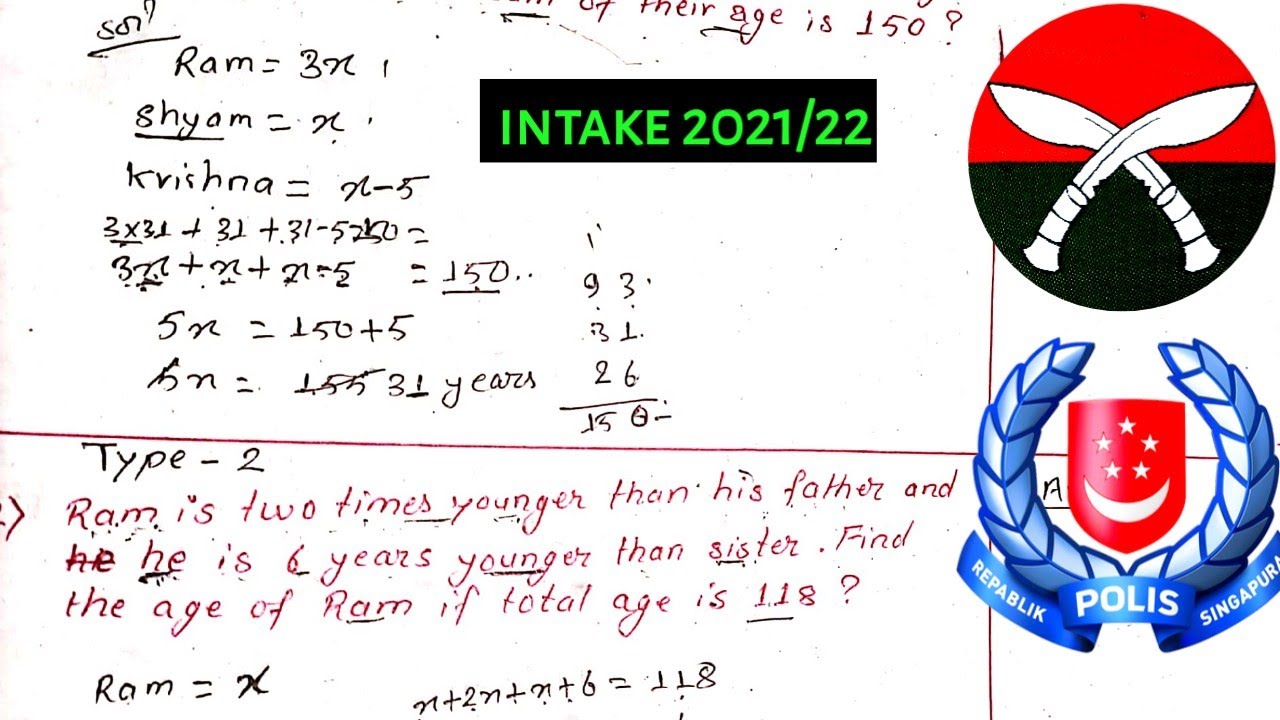 of their age is 150 ?
Ram = 3x
INTAKE 2021/22
shyam = x
krishna = x-5
3x31 + 31 + 31-5
3x + x + x-5 = 150..
93
5x = 150+5
31
5x = 155 31 years
26
150
Type - 2
Ram is two times younger than his father and
he he is 6 years younger than sister. Find
the age of Ram if total age is 118 ?
A
Ram = x
x+2x+x+6 = 118
REPABLIK POLIS SINGAPURA